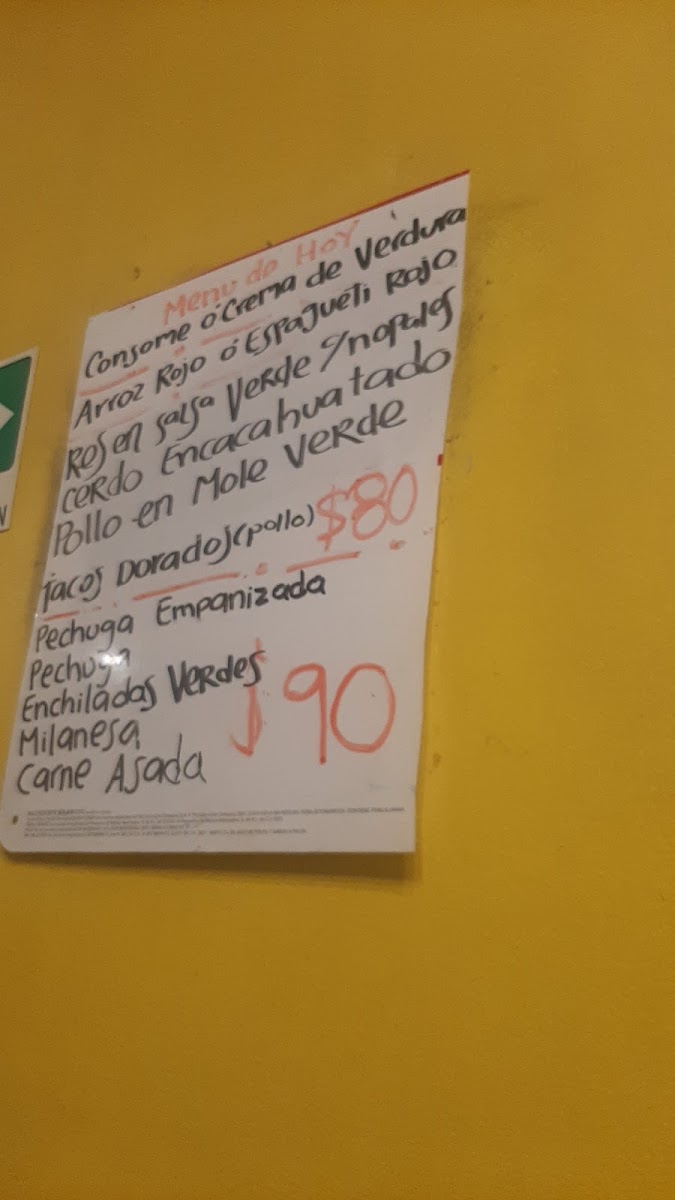 Menu de Hoy
Consome ó Crema de Verdura
Arroz Rojo ó Espagueti Rojo
Res en Salsa Verde c/nopales
Cerdo Encacahuatado
Pollo en Mole Verde
Tacos Dorados (pollo) $80
Pechuga Empanizada
Pechuga
Enchiladas Verdes
Milanesa $90
Carne Asada